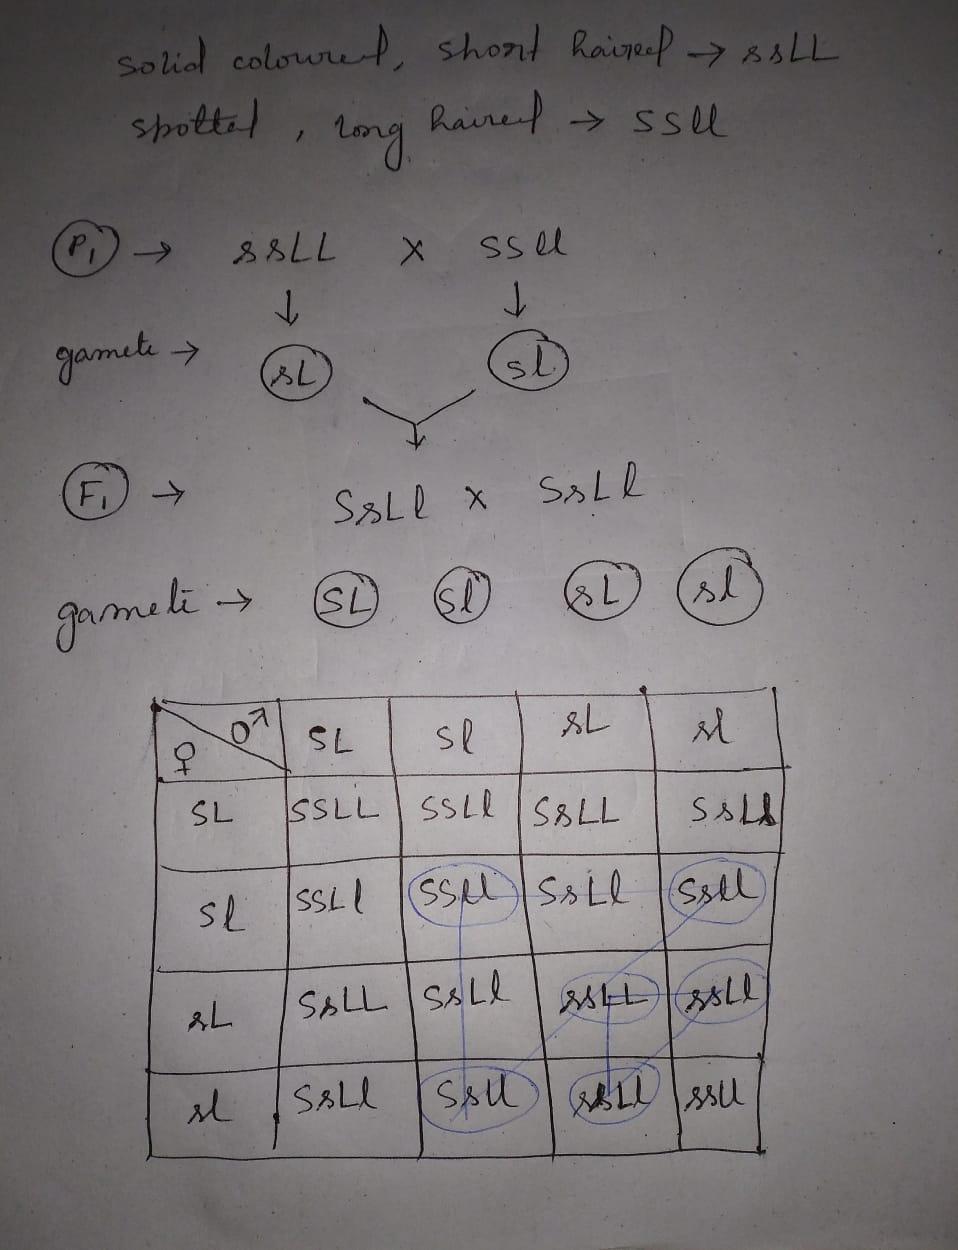 solid coloured, short haired → ssLL
spotted, long haired → SSll
P1 → ssLL x SSll
↓ ↓
gamete → sL Sl
F1 → SsLl x SsLl
gamete → SL Sl sL sl
♀ ♂ SL Sl sL sl
SL SSLL SSLl SsLL SsLl
Sl SSLl SSll SsLl Ssll
sL SsLL SsLl ssLL ssLl
sl SsLl Ssll ssLl ssll